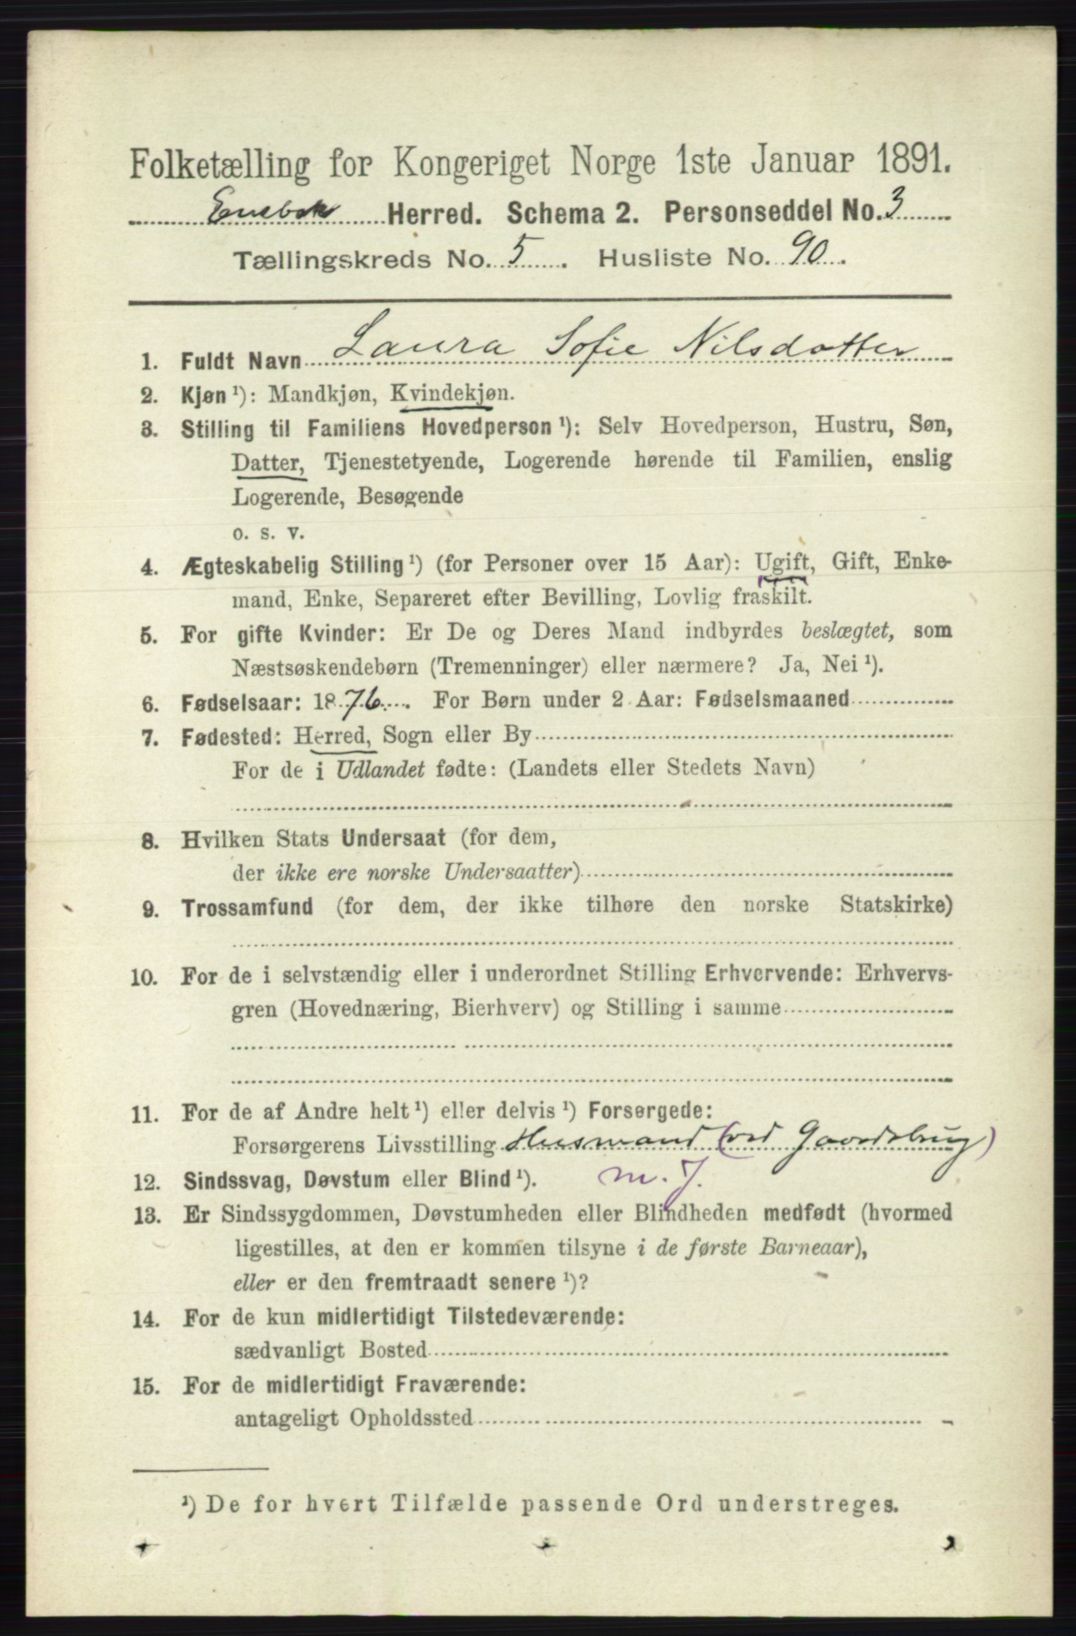 Folketælling for Kongeriget Norge 1ste Januar 1891.
Enebak Herred. Schema 2. Personseddel No. 3
Tællingskreds No. 5. Husliste No. 90.
1. Fuldt Navn Laura Sofie Nilsdatter
2. Kjøn ¹): Mandkjøn, Kvindekjøn.
3. Stilling til Familiens Hovedperson ¹): Selv Hovedperson, Hustru, Søn,
Datter, Tjenestetyende, Logerende hørende til Familien, enslig
Logerende, Besøgende
o. s. v.
4. Ægteskabelig Stilling ¹) (for Personer over 15 Aar): Ugift, Gift, Enke-
mand, Enke, Separeret efter Bevilling, Lovlig fraskilt.
5. For gifte Kvinder: Er De og Deres Mand indbyrdes beslægtet, som
Næstsøskendebørn (Tremenninger) eller nærmere? Ja, Nei ¹).
6. Fødselsaar: 1876. For Børn under 2 Aar: Fødselsmaaned
7. Fødested: Herred, Sogn eller By
For de i Udlandet fødte: (Landets eller Stedets Navn)
8. Hvilken Stats Undersaat (for dem,
der ikke ere norske Undersaatter)
9. Trossamfund (for dem, der ikke tilhøre den norske Statskirke)
10. For de i selvstændig eller i underordnet Stilling Erhvervende: Erhvervs-
gren (Hovednæring, Bierhverv) og Stilling i samme
11. For de af Andre helt ¹) eller delvis ¹) Forsørgede:
Forsørgerens Livsstilling Husmand (ved Gaardsbrug)
12. Sindssvag, Døvstum eller Blind ¹). m. J.
13. Er Sindssygdommen, Døvstumheden eller Blindheden medfødt (hvormed
ligestilles, at den er kommen tilsyne i de første Barneaar),
eller er den fremtraadt senere ¹)?
14. For de kun midlertidigt Tilstedeværende:
sædvanligt Bosted
15. For de midlertidigt Fraværende:
antageligt Opholdssted
¹) De for hvert Tilfælde passende Ord understreges.